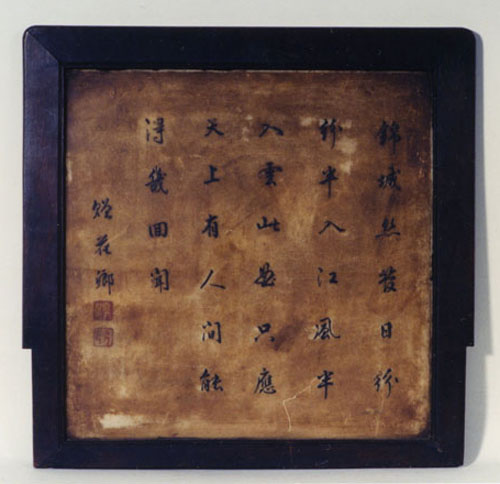 錦城絲管日紛
紛半入江風半
入雲此曲只應
天上有人間能
得幾回聞
贈花卿